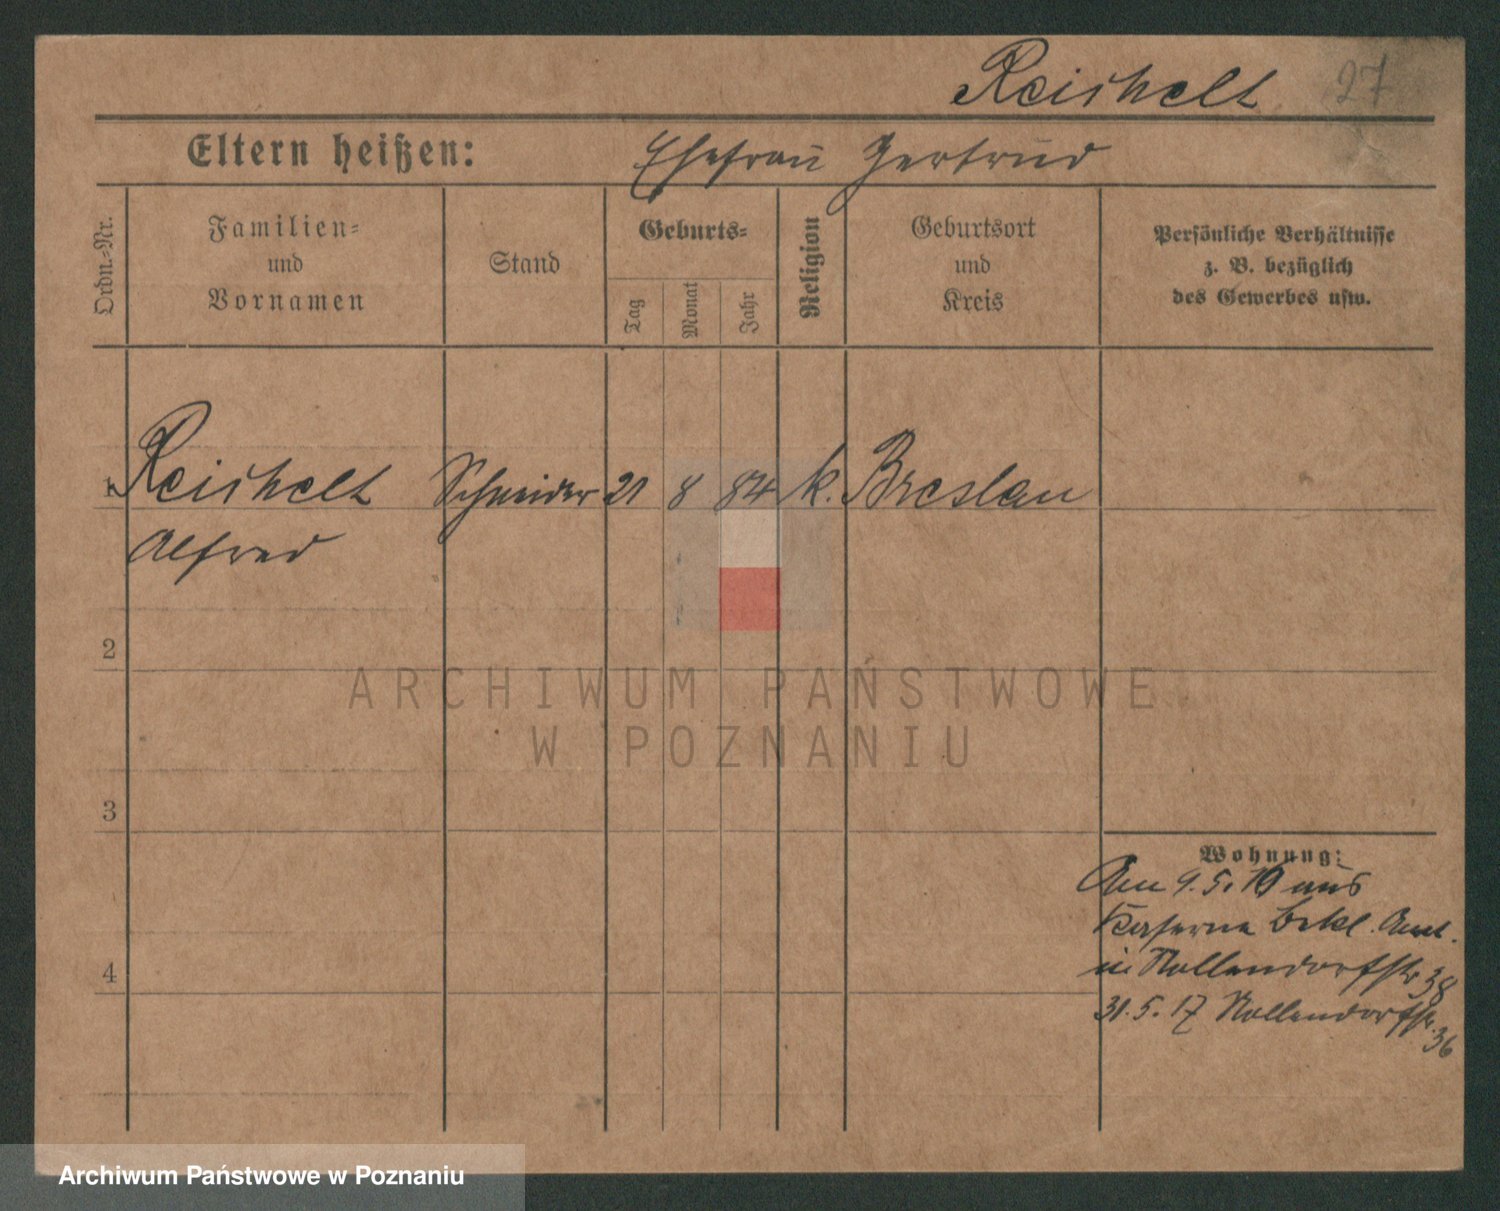 Reichelt 27
Eltern heißen: Ehefrau Gertrud
Ordn.-Nr.
Familien-
und
Vornamen
Stand
Geburts-
Tag
Monat
Jahr
Religion
Geburtsort
und
Kreis
Persönliche Verhältnisse
z. B. bezüglich
des Gewerbes usw.
1 Reichelt Schneider 21 8 84 k. Breslau
Alfred
2
ARCHIWUM PAŃSTWOWE
W POZNANIU
3
Wohnung:
Am 9. 5. aus
Kaserne Bekl. Amt.
in Nollendorfstr 38
4
31. 5. 17 Nollendorfstr. 36
Archiwum Państwowe w Poznaniu